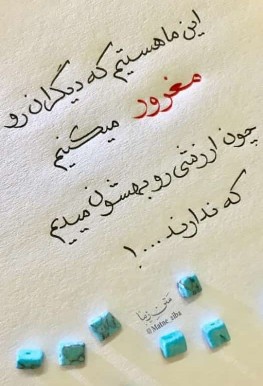 این ما هستیم که دیگران رو
مغرور میکنیم
چون ارزشی رو بهشون میدیم
که ندارند....!
متن زیبا
@Matne_ziba